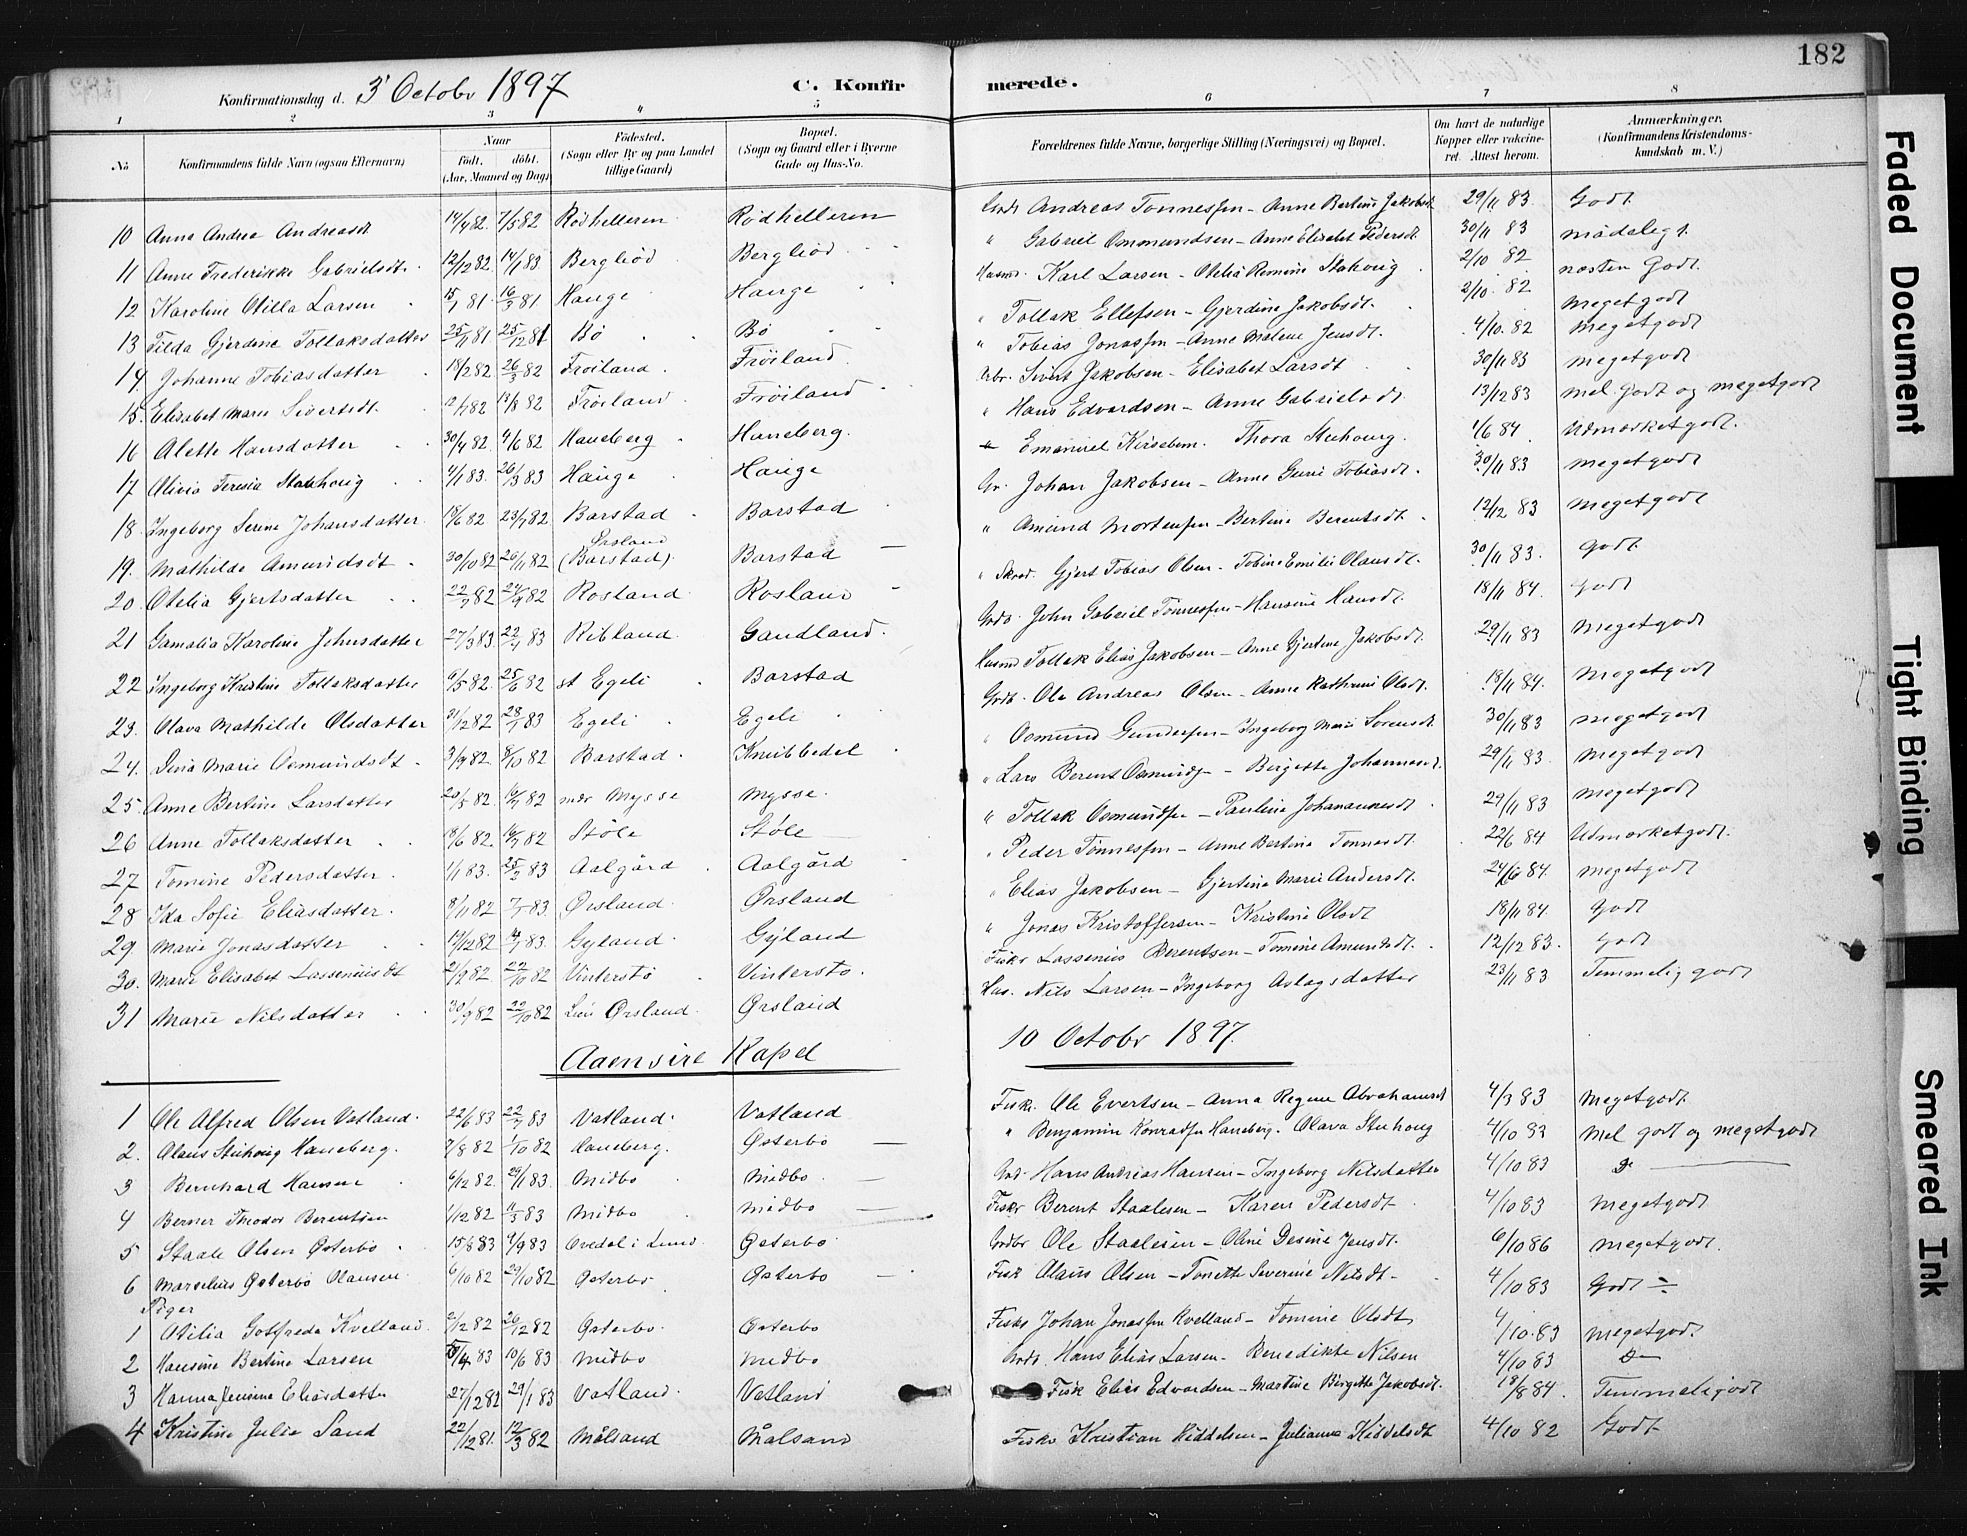 182
Konfirmationsdag d. 3' Octobr 1897 C. Konfirmerede.
1 2 3 4 5 6 7 8
No Konfirmandens fulde Navn (ogsaa Efternavn) Naar født. døbt. (Aar, Maaned og Dag) Fødested. (Sogn eller By og paa Landet tillige Gaard) Bopæl. (Sogn og Gaard eller i Byerne Gade og Hus-No. Forældrenes fulde Navne, borgerlige Stilling (Næringsvei) og Bopæl. Om havt de naturlige Kopper eller vakcineret. Attest herom. Anmærkninger. (Konfirmandens Kristendomskundskab m. V.)
10 Anna Andrea Andreasdt 14/4 82. 7/5 82 Rødhelleren Rødhelleren Andreas Tønnessen - Anne Bertine Jakobsdt 29/11 83 Godt
11 Anne Frederikke Gabrielsdt. 12/12 82. 14/1 83 Bergliød Bergliød " Gabriel Ommundsen - Anne Elisabet Pedersdt. 30/11 83 mådelegt
12 Karoline Otilla Larsen 15/1 81. 16/3 81 Hauge Hauge Husmd Karl Larsen - Otelia Romine Stahoug 2/10 82 næsten Godt.
13 Tilda Gjerdine Tollaksdatter 25/11 81. 25/12 81 Bø Bø " Tollak Ellefsen - Gjerdine Jakobsdt. 2/10. 82 Megetgodt
14. Johanne Tobiasdatter 18/2 82. 26/3 82 Frøiland. Frøiland. " Tobias Jonassen - Anne Malene Jensdt. 4/10. 82 Megetgodt
15. Elisabet Marie Sivertsdt. 82 82 Frøiland. Frøiland Sivert Jakobsen - Elisabet Larsdt 30/11 83 Megetgodt
16 Alette Hansdatter 30/4 82. 4/6 82 Haneberg Haneberg. " Hans Edvardsen - Anne Gabrielsdt 13/12 83 mel. Godt og megetgodt
17 Olivia Teresia Stahoug 4/1 83. 26/3 83 Hauge Hauge Emanuel Kirsebom. Thora Stuhoug. 1/6 84 Udmærketgodt.
18. Ingeborg Serine Johansdatter. 18/6 82 23/7 82 Barstad Barstad Gr. Johan Jakobsen - Anne Guri Tobiasdt. 30/11 83 Megetgodt
19. Mathilde Amundsdt. 30/10 82 26/11 82 Ørsland (Barstad) Barstad " Amund Mortensen - Bertine Berentsdt. 12/12 83 Megetgodt
20. Otelia Gjertsdatter 22/7 82 24/9 82 Rosland. Rosland " Skræd. Gjert Tobias Olsen - Tobine Emilie Olausdt. 30/11 83. Godt
21 Gamalia Karoline Johnsdatter 27/3 83. 22/4 83 Ribland. Gandland. Grdb. John Gabriel Tønnessen - Hansine Hansdt. 18/11 84. Godt
22 Ingeborg Kristine Tollaksdatter 6/5 82. 25/6 82 st Egeli Barstad Husmd Tollak Elias Jakobsen - Anne Gjertine Jakobsdt. 29/11 83 Megetgodt
23. Olava Mathilde Olsdatter 31/12 82 28/1 83 Egeli Egeli Grdb. Ole Andreas Olsen - Anne Kathrine Olsdt. 18/11 84. Megetgodt
24. Lina Marie Osmundsdt. 3/9 82. 8/10 82 Barstad. Knubbedal " Osmund Gundersen - Ingeborg Marie Sørensdt 30/11 83 Megetgodt
25. Anne Bertine Larsdatter 20/5 82. 16/7 82 nær Mysse Mysse. " Lars Berent Osmunds. - Birgette Johannesdt. 29/11 83. Megetgodt
26 Anne Tollaksdatter 18/6 82. 16/7 82 Støle Støle " Tollak Osmundsen - Pauline Johannesdt 29/11 83 Megetgodt
27 Tomine Pedersdatter. 1/1 83. 25/2 83 Aalgård Aalgård " Peder Tønnessen - Anne Bertine Tønnesdt. 22/6 84 Udmærketgodt.
28 Ida Sofie Eliasdatter. 8/11 82 7/1 83. Ørsland. Ørsland " Elias Jakobsen - Gjertine Marie Andersdt. 24/6 84. Megetgodt
29. Marie Jonasdatter 82 83. Gyland. Gyland " Jonas Kristoffersen - Kristine Olsdt 18/11 84. Godt
30. Marie Elisabet Lasseniusdt 2/9 82. 22/10 82 Vinterstø Vinterstø. Fisker Lassenius Berentsen - Tomine Amundsdt. 12/12 83. Godt
31 Marie Nilsdatter 30/9 82 22/10 82 Ørsland. Ørsland Hus. Nils Larsen - Ingeborg Aslagsdatter 23/11 83 Temmelig godt
Aaensire Kapel 10 Octobr 1897.
1 Ole Alfred Olsen Vatland. 22/6 83 22/7 83 Vatland. Vatland Fisk. Ole Evertsen - Anna Regine Abrahamsdt 4/3 83 Megetgodt.
2. Olaus Stuhoug Haneberg. 7/8 82 1/10 82 Haneberg. Østerbø " Benjamin Konradsen Haneberg. Olava Stuhoug 4/10 83 Mel godt og megetgodt
3 Bernhard Hansen 6/12 82. 29/1 83. Midbø Midbø. Hans Andreas Hansen - Ingeborg Nilsdatter 4/10 83 Do
4 Berner Theodor Berentsen 1/12 82 11/3 83 Midbø Midbø Fisker Berent Staalesen - Karen Pedersdt 4/10 83 Megetgodt
5 Staale Olsen Østerbø 15/8 83 9/9 83 Ovedal i Lund. Østerbø Grdbr Ole Staalesen - Oline Desine Jensdt. 6/10 86 Megetgodt.
6 Marselius Østerbø Olausen 6/10 82 29/10 82 Østerbø. Østerbø Fisk Olaus Olsen - Tonette Severine Nilsdt. 4/10 83 Godt ÷
Piger
1 Otilia Gotfreda Kvelland. 2/12 82 26/12 82 Østerbø. Østerbø Fisker Johan Jonassen Kvelland - Tomine Olsdt 4/10.83 Megetgodt.
2 Hansine Bertine Larsen 83 10/6 83 Midbø Midbø Hans Elias Larsen - Benedikte Nilsen 4/10 83 Do
3 Hanna Jensine Eliasdatter 27/12 82 29/1 83 Vatland. Vatland Fisk Elias Edvardsen - Martine Birgitte Jakobsdt. 18/8 84. Temmeligodt
4 Kristine Julie Sand 22/12 81. 12/3 82 Målsand Målsand Fisker Kristian Kiddelsen - Julianne Kiddelsdt 4/10 82 Godt.
Faded Document
Tight Binding
Smeared Ink